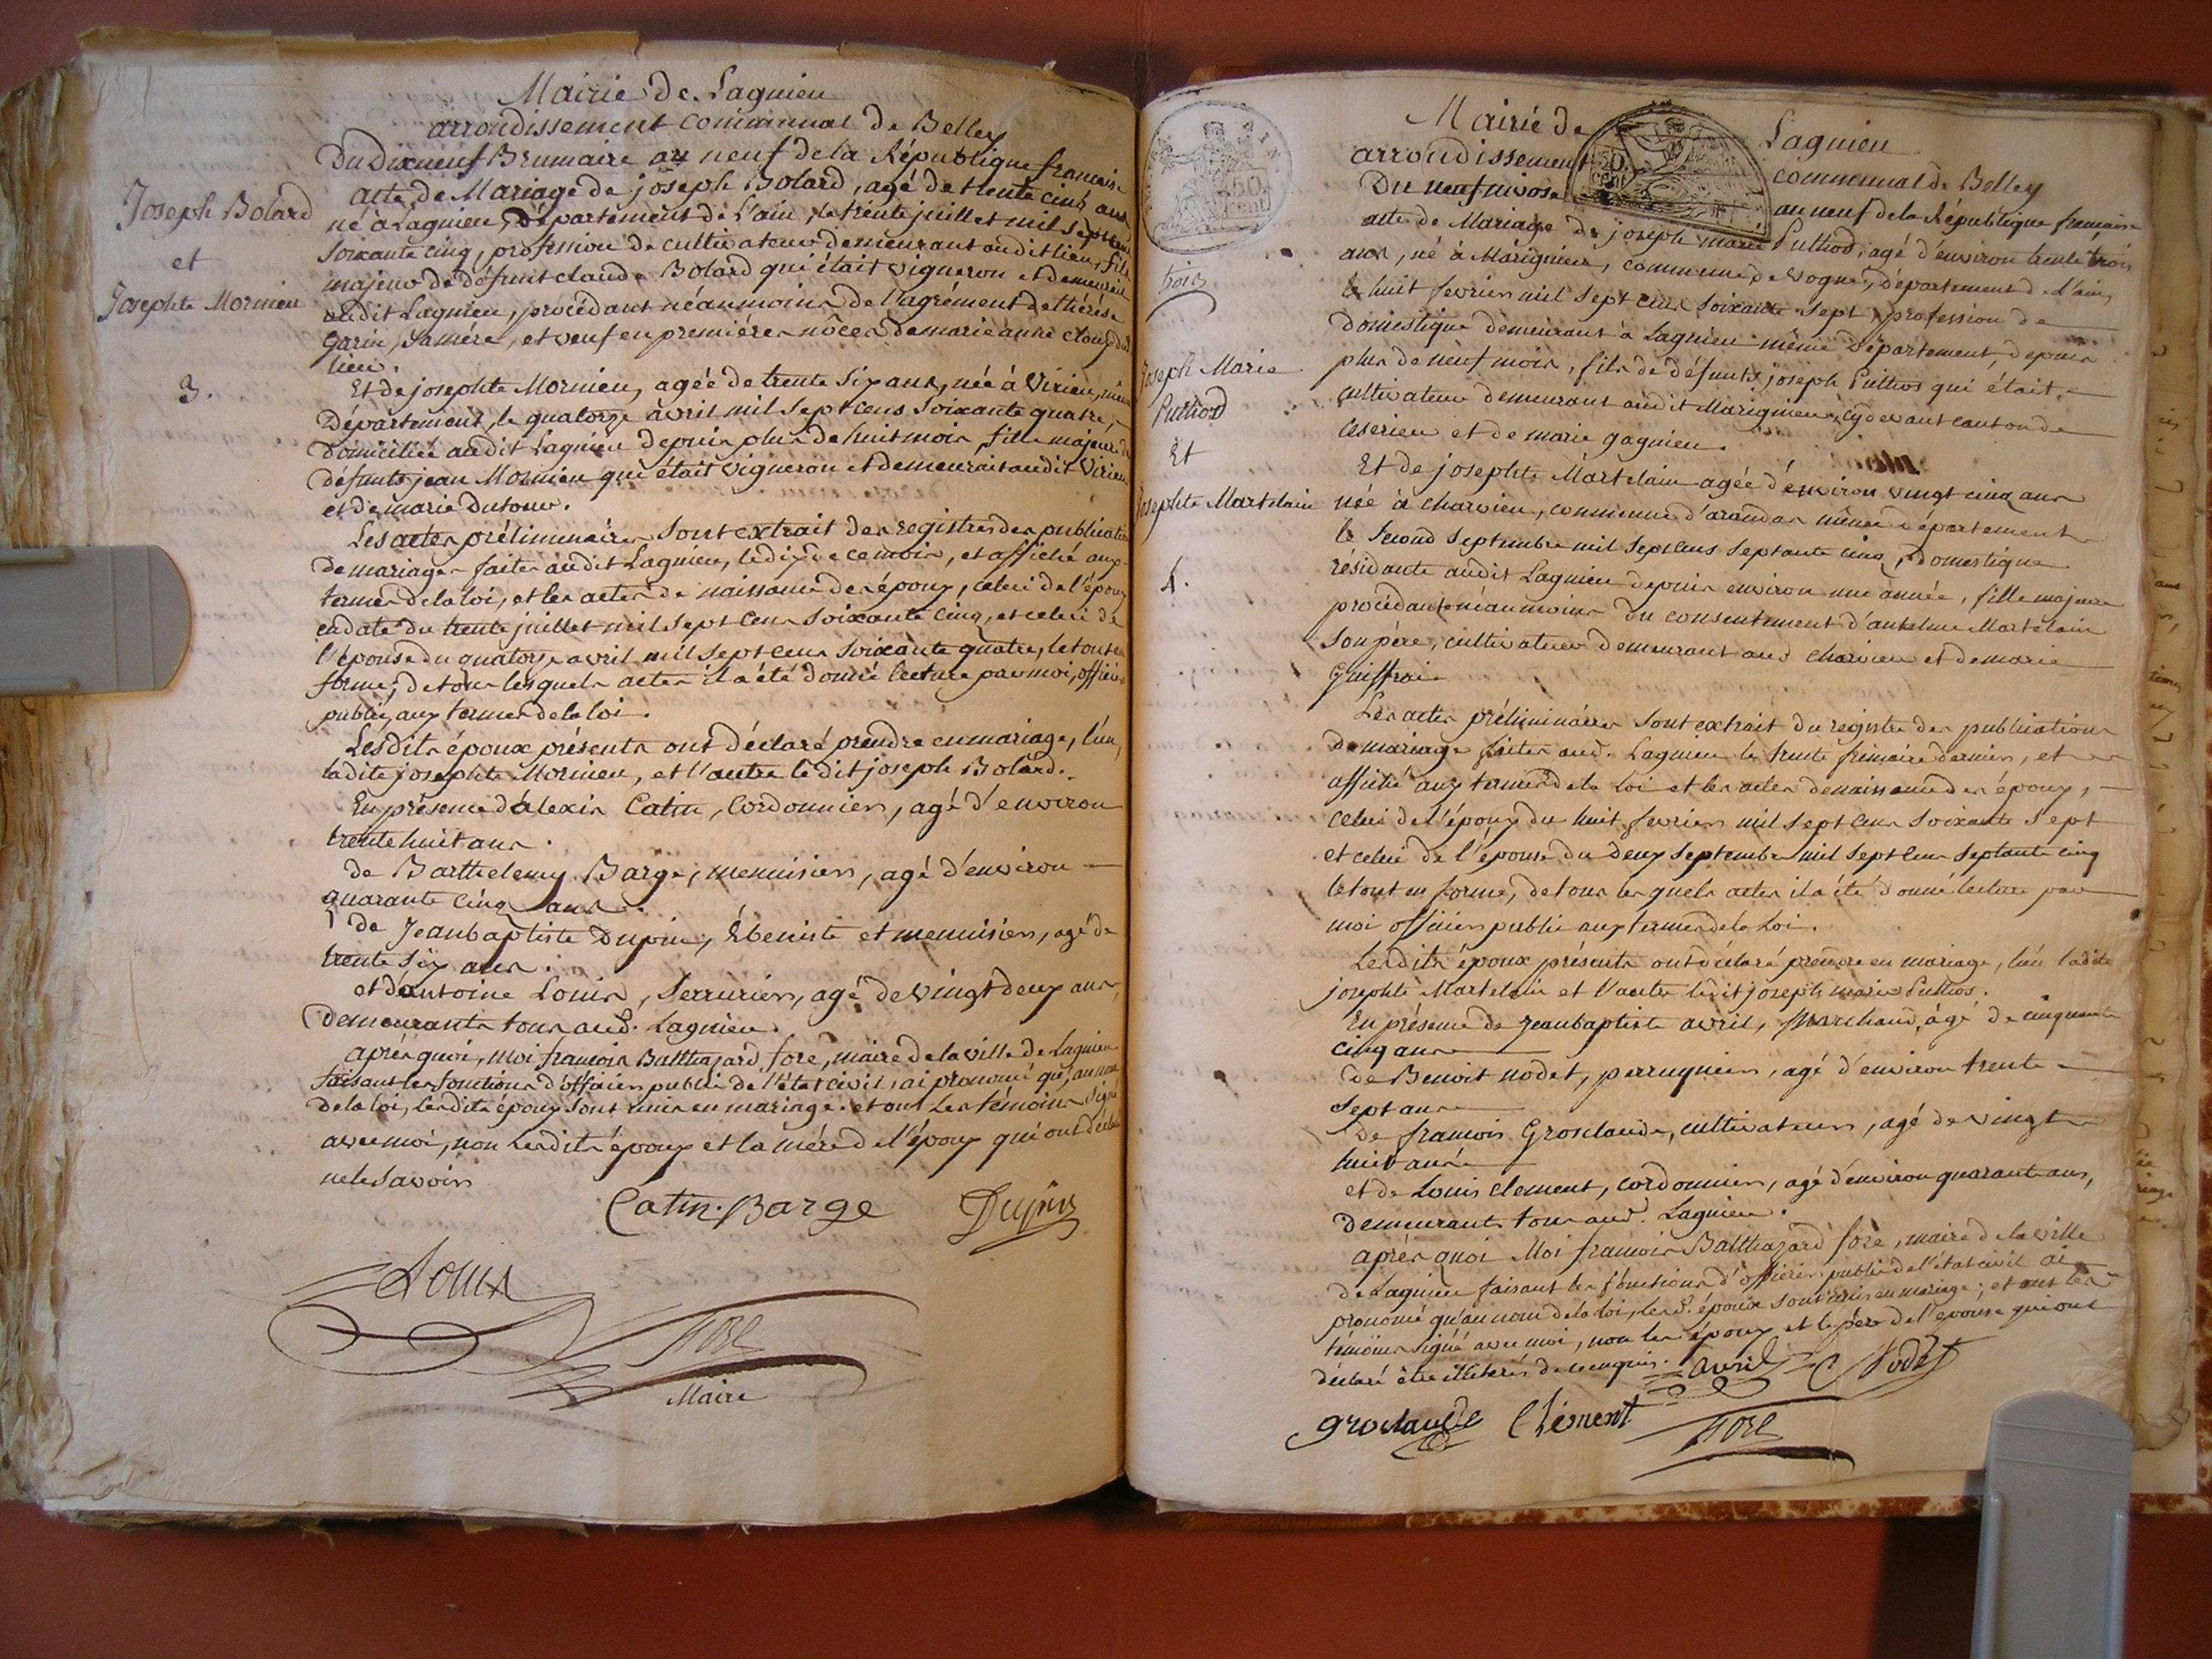 Mairie de Lagnieu
arrondissement communal de Belley
Du Dixneuf Brumaire an neuf de la République francaise
Joseph Bolard
et
Josephte Mornieu
3.
acte de Mariage de joseph Bolard, agé de trente cinq ans
né à Lagnieu, Département de l'ain, le trente juillet mil sept cent
soixante cinq, profession de cultivateur demeurant audit lieu, fils
majeur de défunt claude Bolard qui était vigneron et demeurait
audit Lagnieu, procédant néanmoins de l'agrément de thérése
Garin, sa mére, et veuf en premiéres nôces de marie anne
lieu.
Et de josephte Mornieu, agée de trente six ans, née à Virieu, même
Département, le quatorze avril mil sept cens soixante quatre,
Domiciliée audit Lagnieu depuis plus de huit mois fille majeure de
défunts jean Mornieu qui était vigneron et demeurait audit Virieu
et de marie Dutour.
Les actes préliminaires sont extrait des registres des publications
de mariages faites audit Lagnieu, le dix de ce mois, et affiché aux
termes de la loi, et les actes de naissance des époux, celui de l'époux
en date du trente juillet mil sept cens soixante cinq, et celui de
l'épouse du quatorze avril mil sept cens soixante quatre, le tout en
forme, de tous lesquels actes il a été donné lecture par moi, officier
public, aux termes de la loi.
Lesdits époux présents ont déclaré prendre en mariage, l'un,
ladite josephte Mornieu, et l'autre ledit joseph Bolard.
En présence d'alexis Catin, Cordonnier, agé d'environ
trente huit ans.
de Barthelemy Barge, menuisier, agé d'environ
quarante cinq ans.
de Jean baptiste Dupin, Ébeniste et menuisier, agé de
trente six ans.
et d'antoine Louis, serrurier, agé de vingt deux ans,
demeurants tous aud. Lagnieu.
aprés quoi, moi francois Balthazard fore, maire de la ville de Lagnieu
faisant les fonctions d'officier public de l'état civil, ai prononcé qu'au nom
de la loi, lesdits époux sont unis en mariage. et ont les témoins signé
avec moi, non lesdits époux et la mére de l'époux qui ont déclaré
ne le savoir
Catin. Barge Dupin
Louis
Fore
Maire
Mairie de Lagnieu
arrondissement communal de Belley
Du neuf nivose an neuf de la République française
50 cent
50 cent
trois
Joseph Marie
Puthod
Et
Josephte Martelain
4.
acte de Mariage de joseph marie Puthod, agé d'environ trente trois
ans, né à Marignieu, commune de vogne, Département de l'ain,
le huit fevrier mil sept cens soixante sept, profession de
domestique demeurant à Lagnieu même Département, depuis
plus de neuf mois, fils de défunts joseph Puthos qui était
cultivateur demeurant audit Marignieu, cydevant canton de
Ceserieu et de marie gagnieu.
Et de josephte Martelain agéé d'environ vingt cinq ans
née à charvieu, commune d'arandas même département
le second septembre mil sept cens septante cinq, domestique
résidante audit Lagnieu depuis environ une année, fille majeure
procédant néanmoins du consentement d'antelme Martelain
son pére, cultivateur demeurant aud charvieu et de marie
Guiffrai
Les actes préliminaires sont extrait du registre des publications
de mariage faites aud. Lagnieu le trente frimaire dernier, et
affiché aux termes de la loi et les actes de naissance des époux,
celui de l'époux du huit fevrier mil sept cens soixante sept
et celui de l'épouse du deux septembre mil sept cens septante cinq
le tout en forme, de tous lesquels actes il a été donné lecture par
moi officier public aux termes de la loi.
Lesdits époux présents ont déclaré prendre en mariage, l'un ladite
josephte Martelain et l'autre ledit joseph marie Puthos.
En présence de Jean baptiste avril, Marchand, âgé de cinquante
cinq ans
de Benoit nodet, perruquier, agé d'environ trente
sept ans
de francois Grosclaude, cultivateur, agé de vingt
huit ans
et de Louis clement, cordonnier, agé d'environ quarante ans,
demeurants tous aud. Lagnieu.
aprés quoi Moi francois Balthazard fore, maire de la ville
de Lagnieu faisant les fonctions d'officier public de l'état civil ai
prononcé qu'au nom de la loi, lesd. époux sont unis en mariage; et ont les
témoins signé avec moi, non les époux et le pére de l'épouse qui ont
déclaré être illiterés de ce enquis.
avril Nodet
groclaude Clément Fore